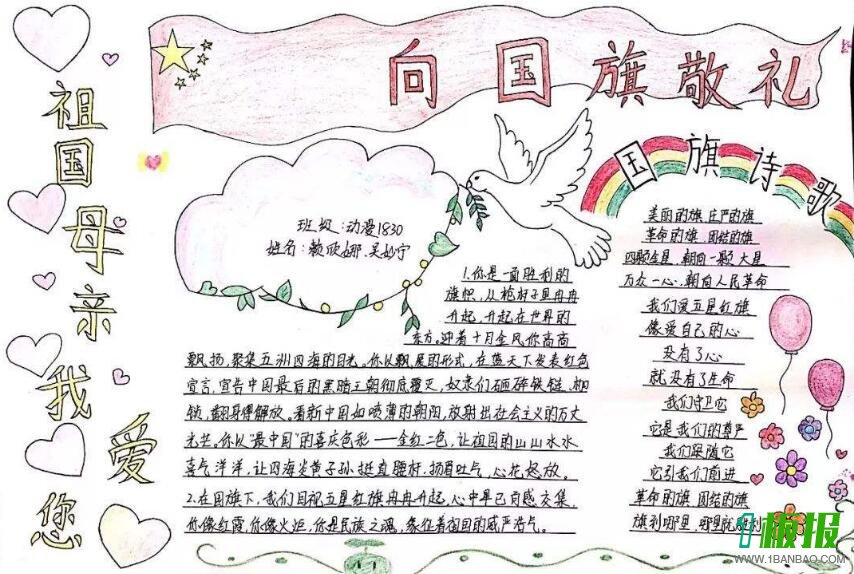 向国旗敬礼
祖国母亲我爱您
班级:动漫1830
姓名:赖欣娜.吴妙宁
1.你是一面胜利的
旗帜,从枪杆子里冉冉
升起,升起在世界的
东方。迎着十月金风你高高
飘扬,聚集五洲四海的目光。你以飘展的形式,在蓝天下发表红色
宣言,宣告中国最后的黑暗王朝彻底覆灭,奴隶们砸碎铁链、枷
锁,翻身得解放。看新中国如喷薄的朝阳,放射出社会主义的万丈
光芒。你以"最中国"的喜庆色彩——金红二色,让祖国的山山水水
喜气洋洋,让四海炎黄子孙挺直腰杆,扬眉吐气,心花怒放。
2.在国旗下,我们目视五星红旗冉冉升起,心中早已百感交集,
你像红霞,你像火炬,你是民族之魂,象征着祖国的威严浩气。
国旗诗歌
美丽的旗,庄严的旗
革命的旗,团结的旗
四颗金星,朝向一颗大星
万众一心,朝向人民革命
我们爱五星红旗
像爱自己的心
没有了心
就没有了生命
我们守卫它
它是我们的尊严
我们跟随它
它引我们前进
革命的旗 团结的旗
旗到哪里,哪里就胜利
1板报
WWW.1BANBAO.COM